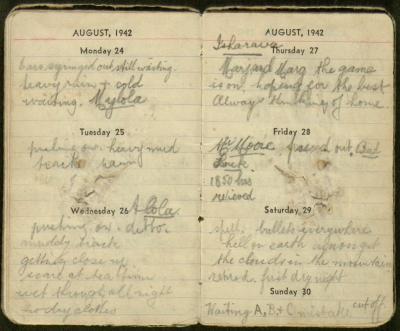 AUGUST, 1942
Monday 24
Ears syringed out still waiting.
heavy rain + cold
waiting. Myola
Tuesday 25
pushing on. heavy mud
track rain
Wednesday 26 Alola
pushing on. ditto.
muddy track
getting close up
scare at tea time
wet through all night
no dry clothes
AUGUST, 1942
Isharava
Thursday 27
Marj and Marg the game
is on, hoping for the best
Always thinking of home.
Friday 28
Mr Moore passed out. Bad
Luck.
1850 hrs
relieved
Saturday 29
shells bullets everywhere
hell on earth amongst
the clouds in the mountains
retired. first dry night
Sunday 30
Waiting A, B, + C mistake cut off